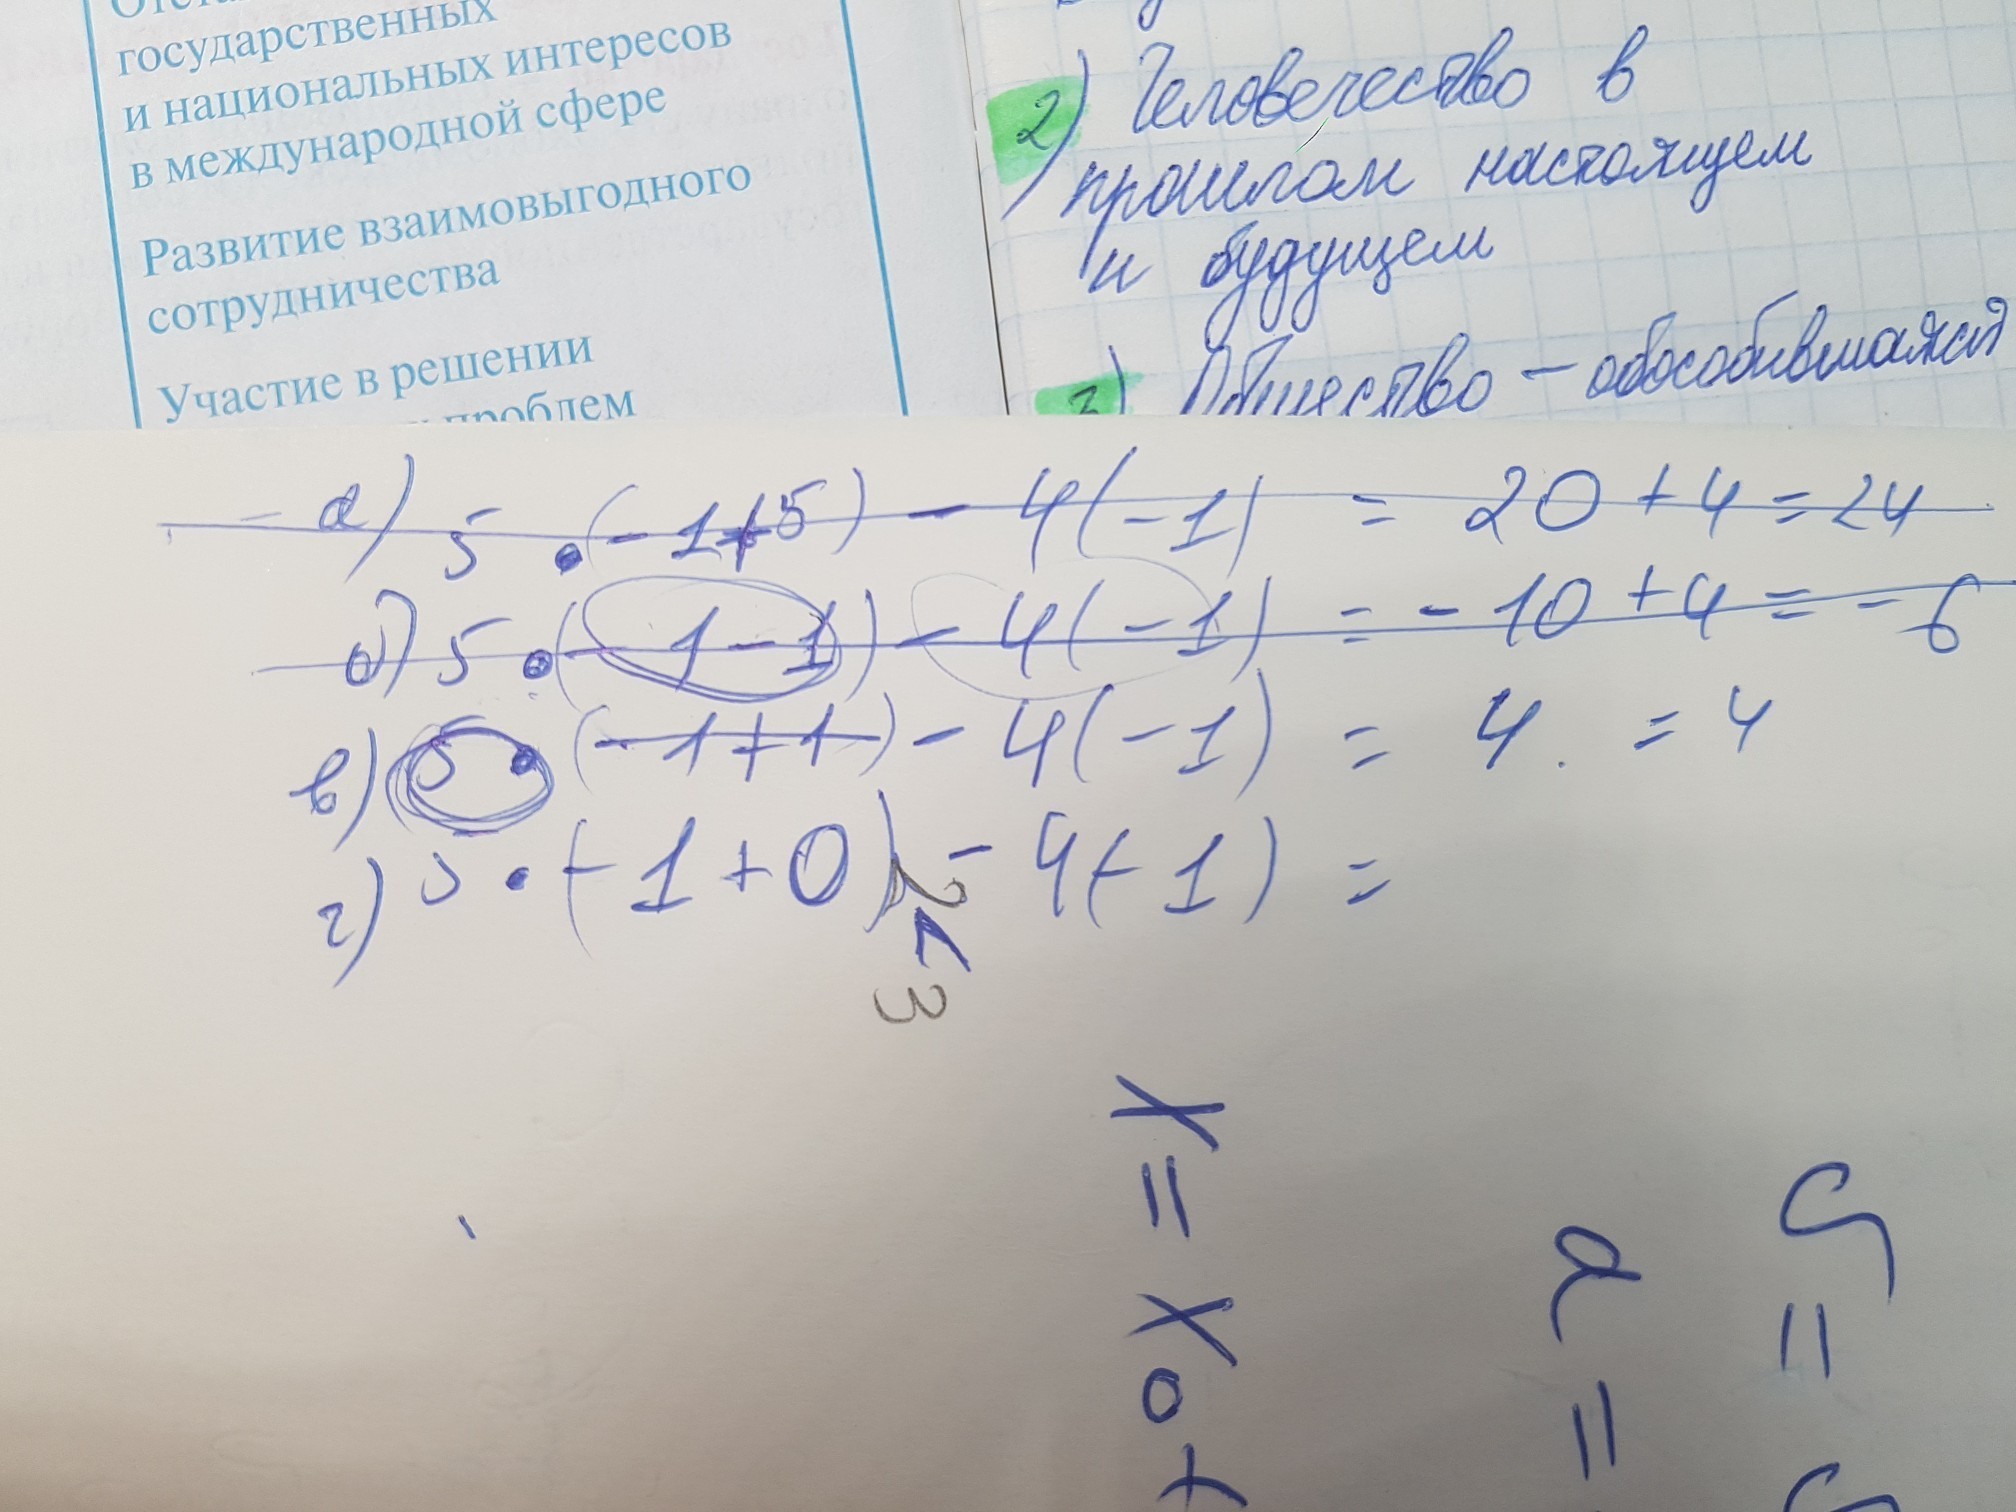 государственных
и национальных интересов
в международной сфере
Развитие взаимовыгодного
сотрудничества
Участие в решении
проблем
2) Человечество в
прошлом настоящем
и будущем
3) Общество - обособившаяся
а) 5 • (-1+5) - 4(-1) = 20 + 4 = 24
б) 5 • (-1-1) - 4(-1) = -10 + 4 = -6
в) 5 • (-1+1) - 4(-1) = 4. = 4
г) 5 • (-1+0) - 4(-1) =
2 < 3
x = x0 +